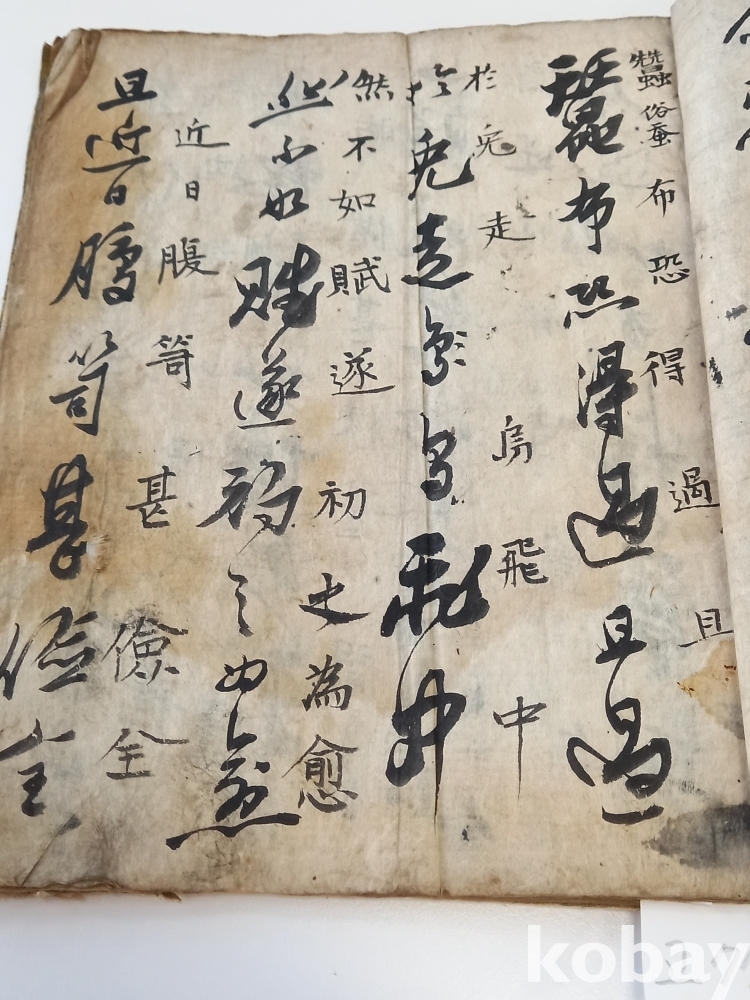 蠶俗蚕布恐得過且
蠶布恐得過且過
於兔走烏飛中
於兔走烏飛中
然不如賦遂初之為愈
然不如賦遂初之為愈
近日腹笥甚儉全
且近日腹笥甚儉全
kobay